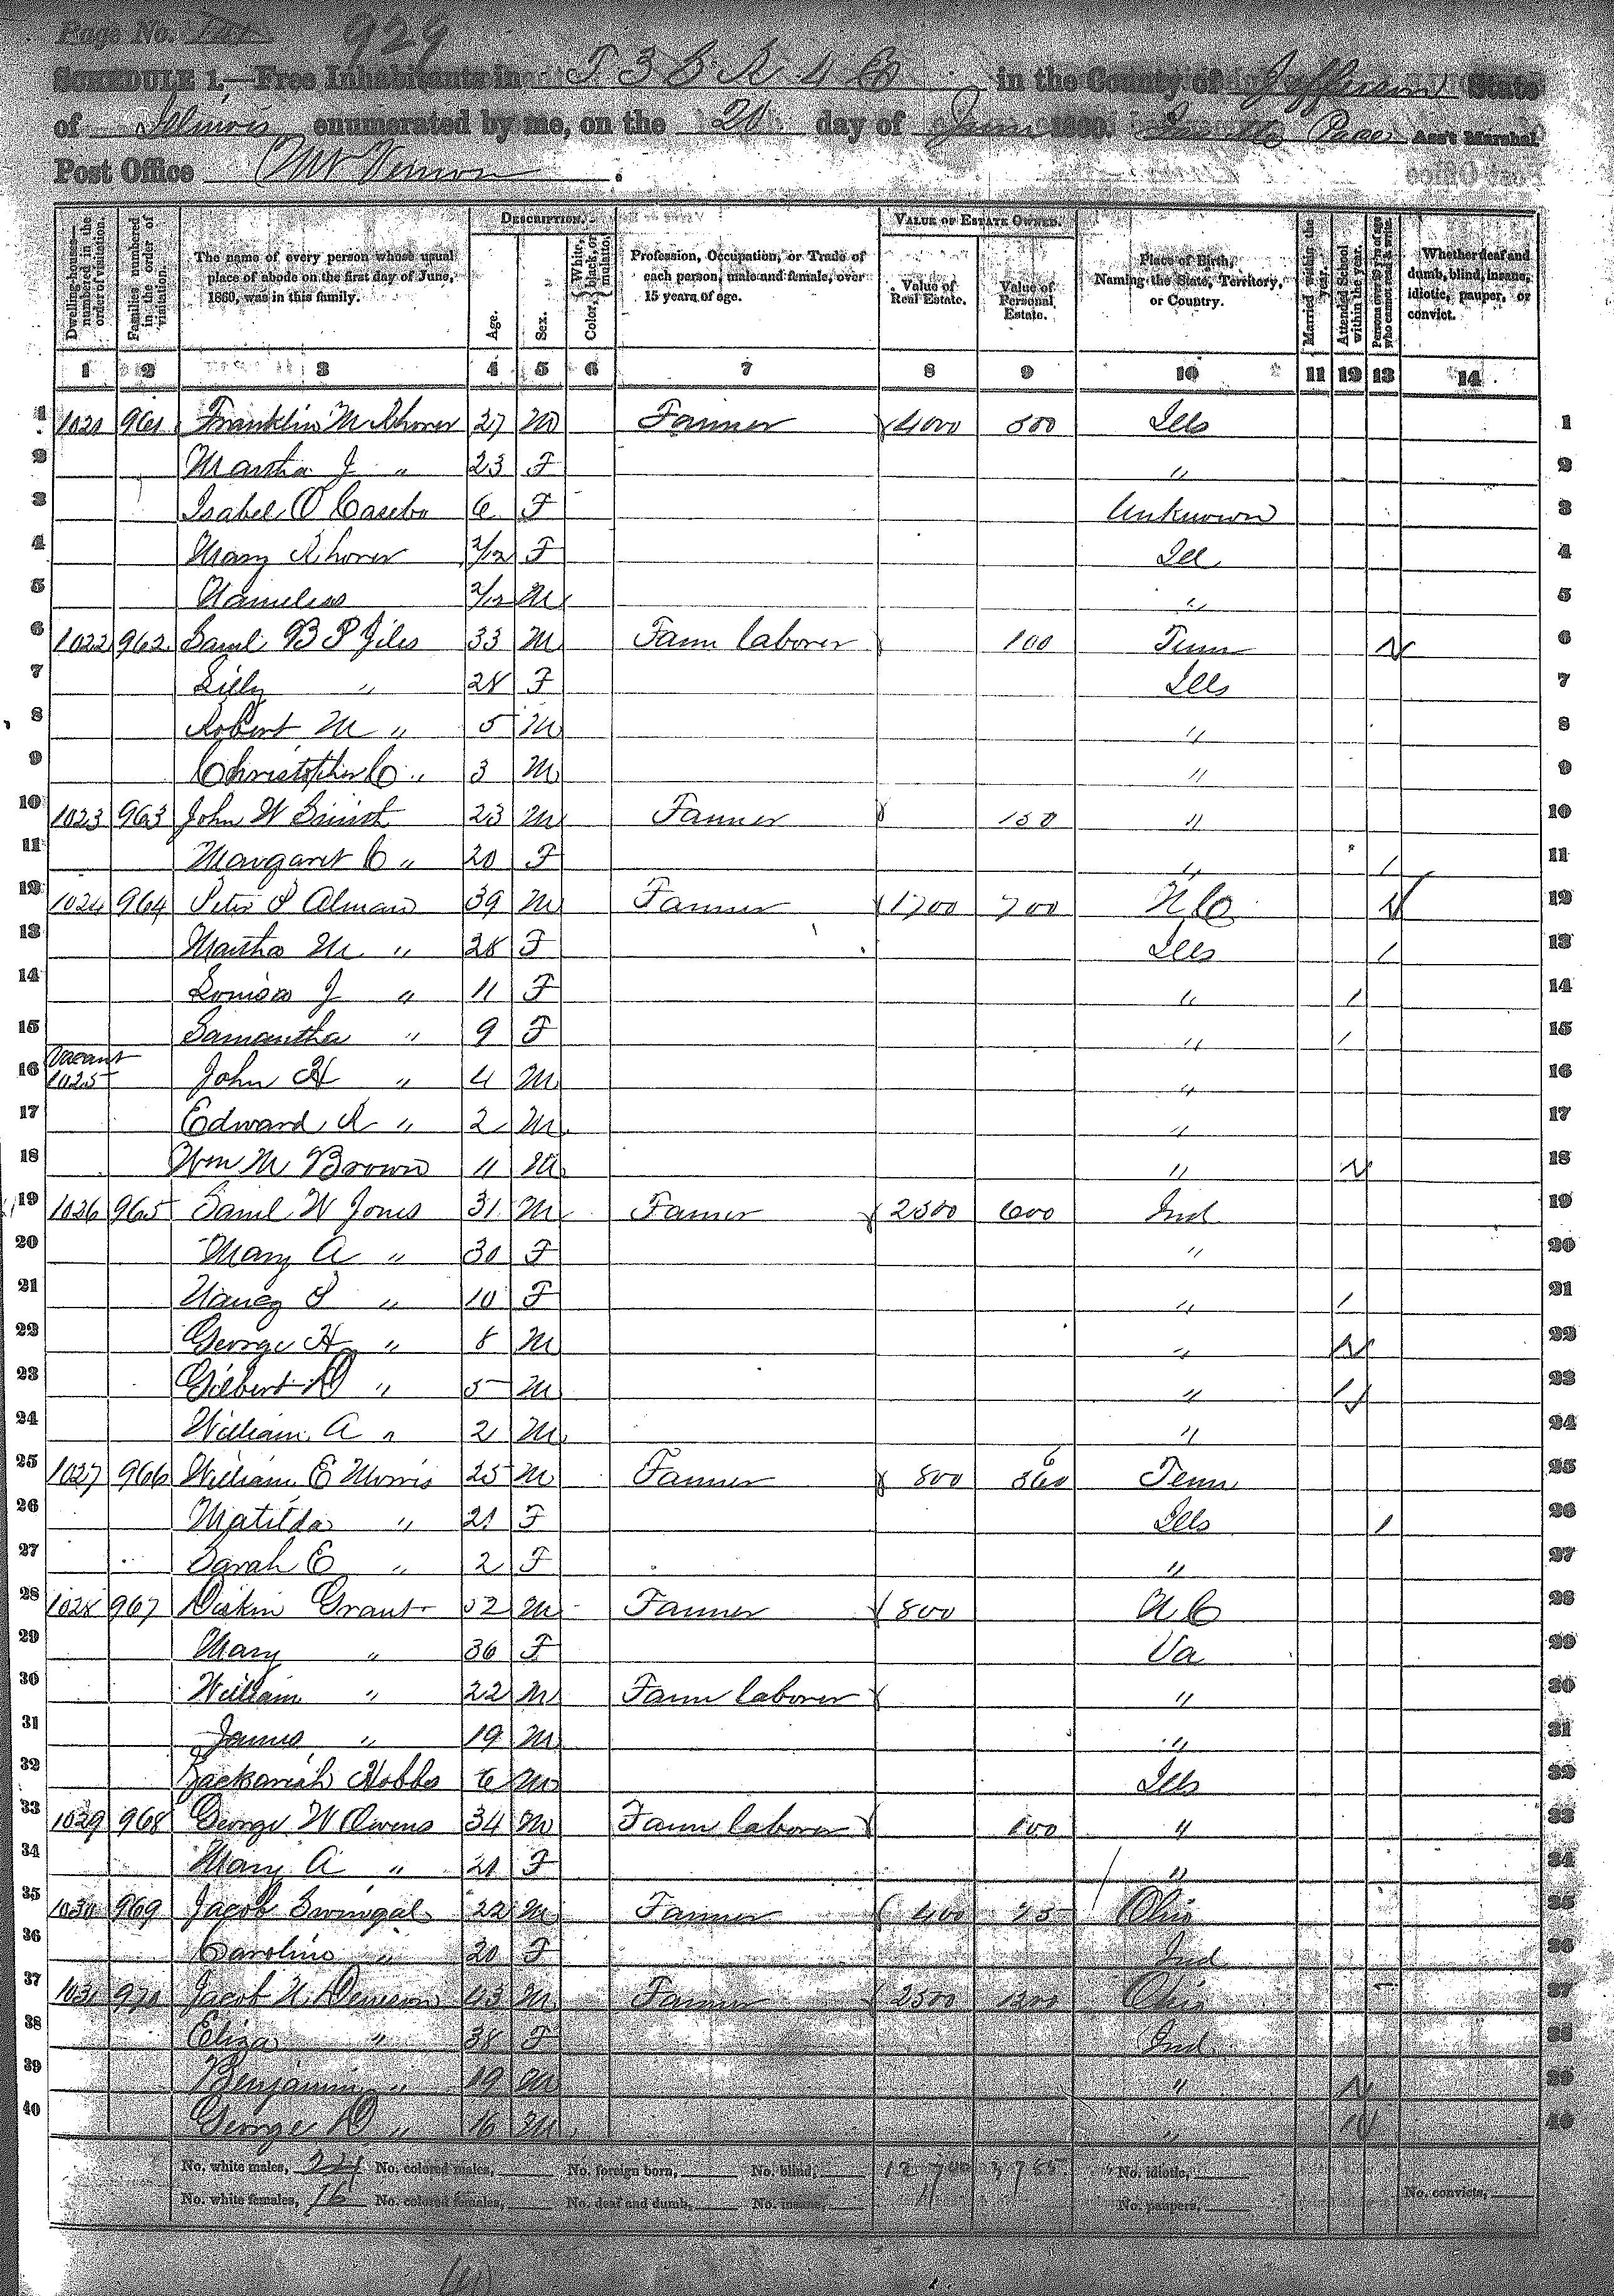 Page No. 929
SCHEDULE 1.—Free Inhabitants in T 3 S R 4 E in the County of Jefferson State
of Illinois enumerated by me, on the 20 day of June 1860. Pace Ass't Marshal
Post Office Mt Vernon.
Dwelling-houses—numbered in the order of visitation.
Families numbered in the order of visitation.
The name of every person whose usual place of abode on the first day of June, 1860, was in this family.
DESCRIPTION.
Age.
Sex.
Color, {White, black, or mulatto.
Profession, Occupation, or Trade of each person, male and female, over 15 years of age.
VALUE OF ESTATE OWNED.
Value of Real Estate.
Value of Personal Estate.
Place of Birth, Naming the State, Territory, or Country.
Married within the year.
Attended School within the year.
Persons over 20 y'rs of age who cannot read & write.
Whether deaf and dumb, blind, insane, idiotic, pauper, or convict.
1 2 3 4 5 6 7 8 9 10 11 12 13 14
1 1021 961 Franklin M 27 M Farmer 4000 500 Ills 1
2 Martha J " 23 F " 2
3 Isabel O 6 F Unknown 3
4 Mary 2/12 F Ill 4
5 Nameless 2/12 M " 5
6 1022 962 Saml B P Jiles 33 M Farm laborer 100 Tenn 6
7 Lilly " 28 F Ills 7
8 Robert M " 5 M " 8
9 Christopher C " 3 M " 9
10 1023 963 John W 23 M Farmer 150 " 10
11 Margaret C " 20 F " / 11
12 1024 964 Peter P Alman 39 M Farmer 1700 700 N C 12
13 Martha M " 28 F Ills / 13
14 Louisa J " 11 F " / 14
15 Samantha " 9 F " / 15
Vacant
16 1025 John H " 4 M " 16
17 Edward R " 2 M " 17
18 Wm M Brown 11 M " 18
19 1026 965 Saml W Jones 31 M Farmer 2500 600 Ind 19
20 Mary A " 30 F " 20
21 Nancy P " 10 F " / 21
22 George H " 8 M " 22
23 Gilbert D " 5 M " 23
24 William A " 2 M " 24
25 1027 966 William E Morris 25 M Farmer 800 Tenn 25
26 Matilda " 21 F Ills / 26
27 Sarah E " 2 F " 27
28 1028 967 Grant 52 M Farmer 800 N C 28
29 Mary " 36 F Va 29
30 William " 22 M Farm laborer " 30
31 James " 19 M " 31
32 Zackariah Hobbs 6 M Ills 32
33 1029 968 George W Owens 34 M Farm laborer 100 " 33
34 Mary A " 21 F " 34
35 1030 969 Jacob Swingal 22 M Farmer 400 75 Ohio 35
36 Caroline " 20 F Ind 36
37 1031 970 Jacob N Denison 43 M Farmer 2500 1200 Ohio 37
38 Eliza " 38 F Ind 38
39 Benjamin " 19 M " 39
40 George D " 16 M " 40
No. white males, 24 No. colored males, No. foreign born, No. blind, 12 700 3 755 No. idiotic,
No. white females, 16 No. colored females, No. deaf and dumb, No. insane, No. paupers, No. convicts,